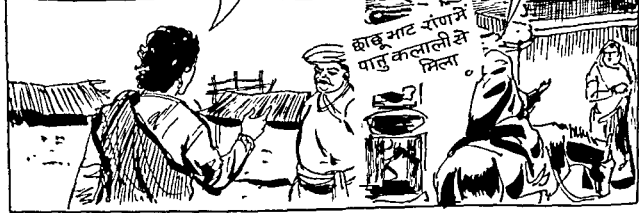 छाछू भाट रांण में
पानु कलाली से
मिला